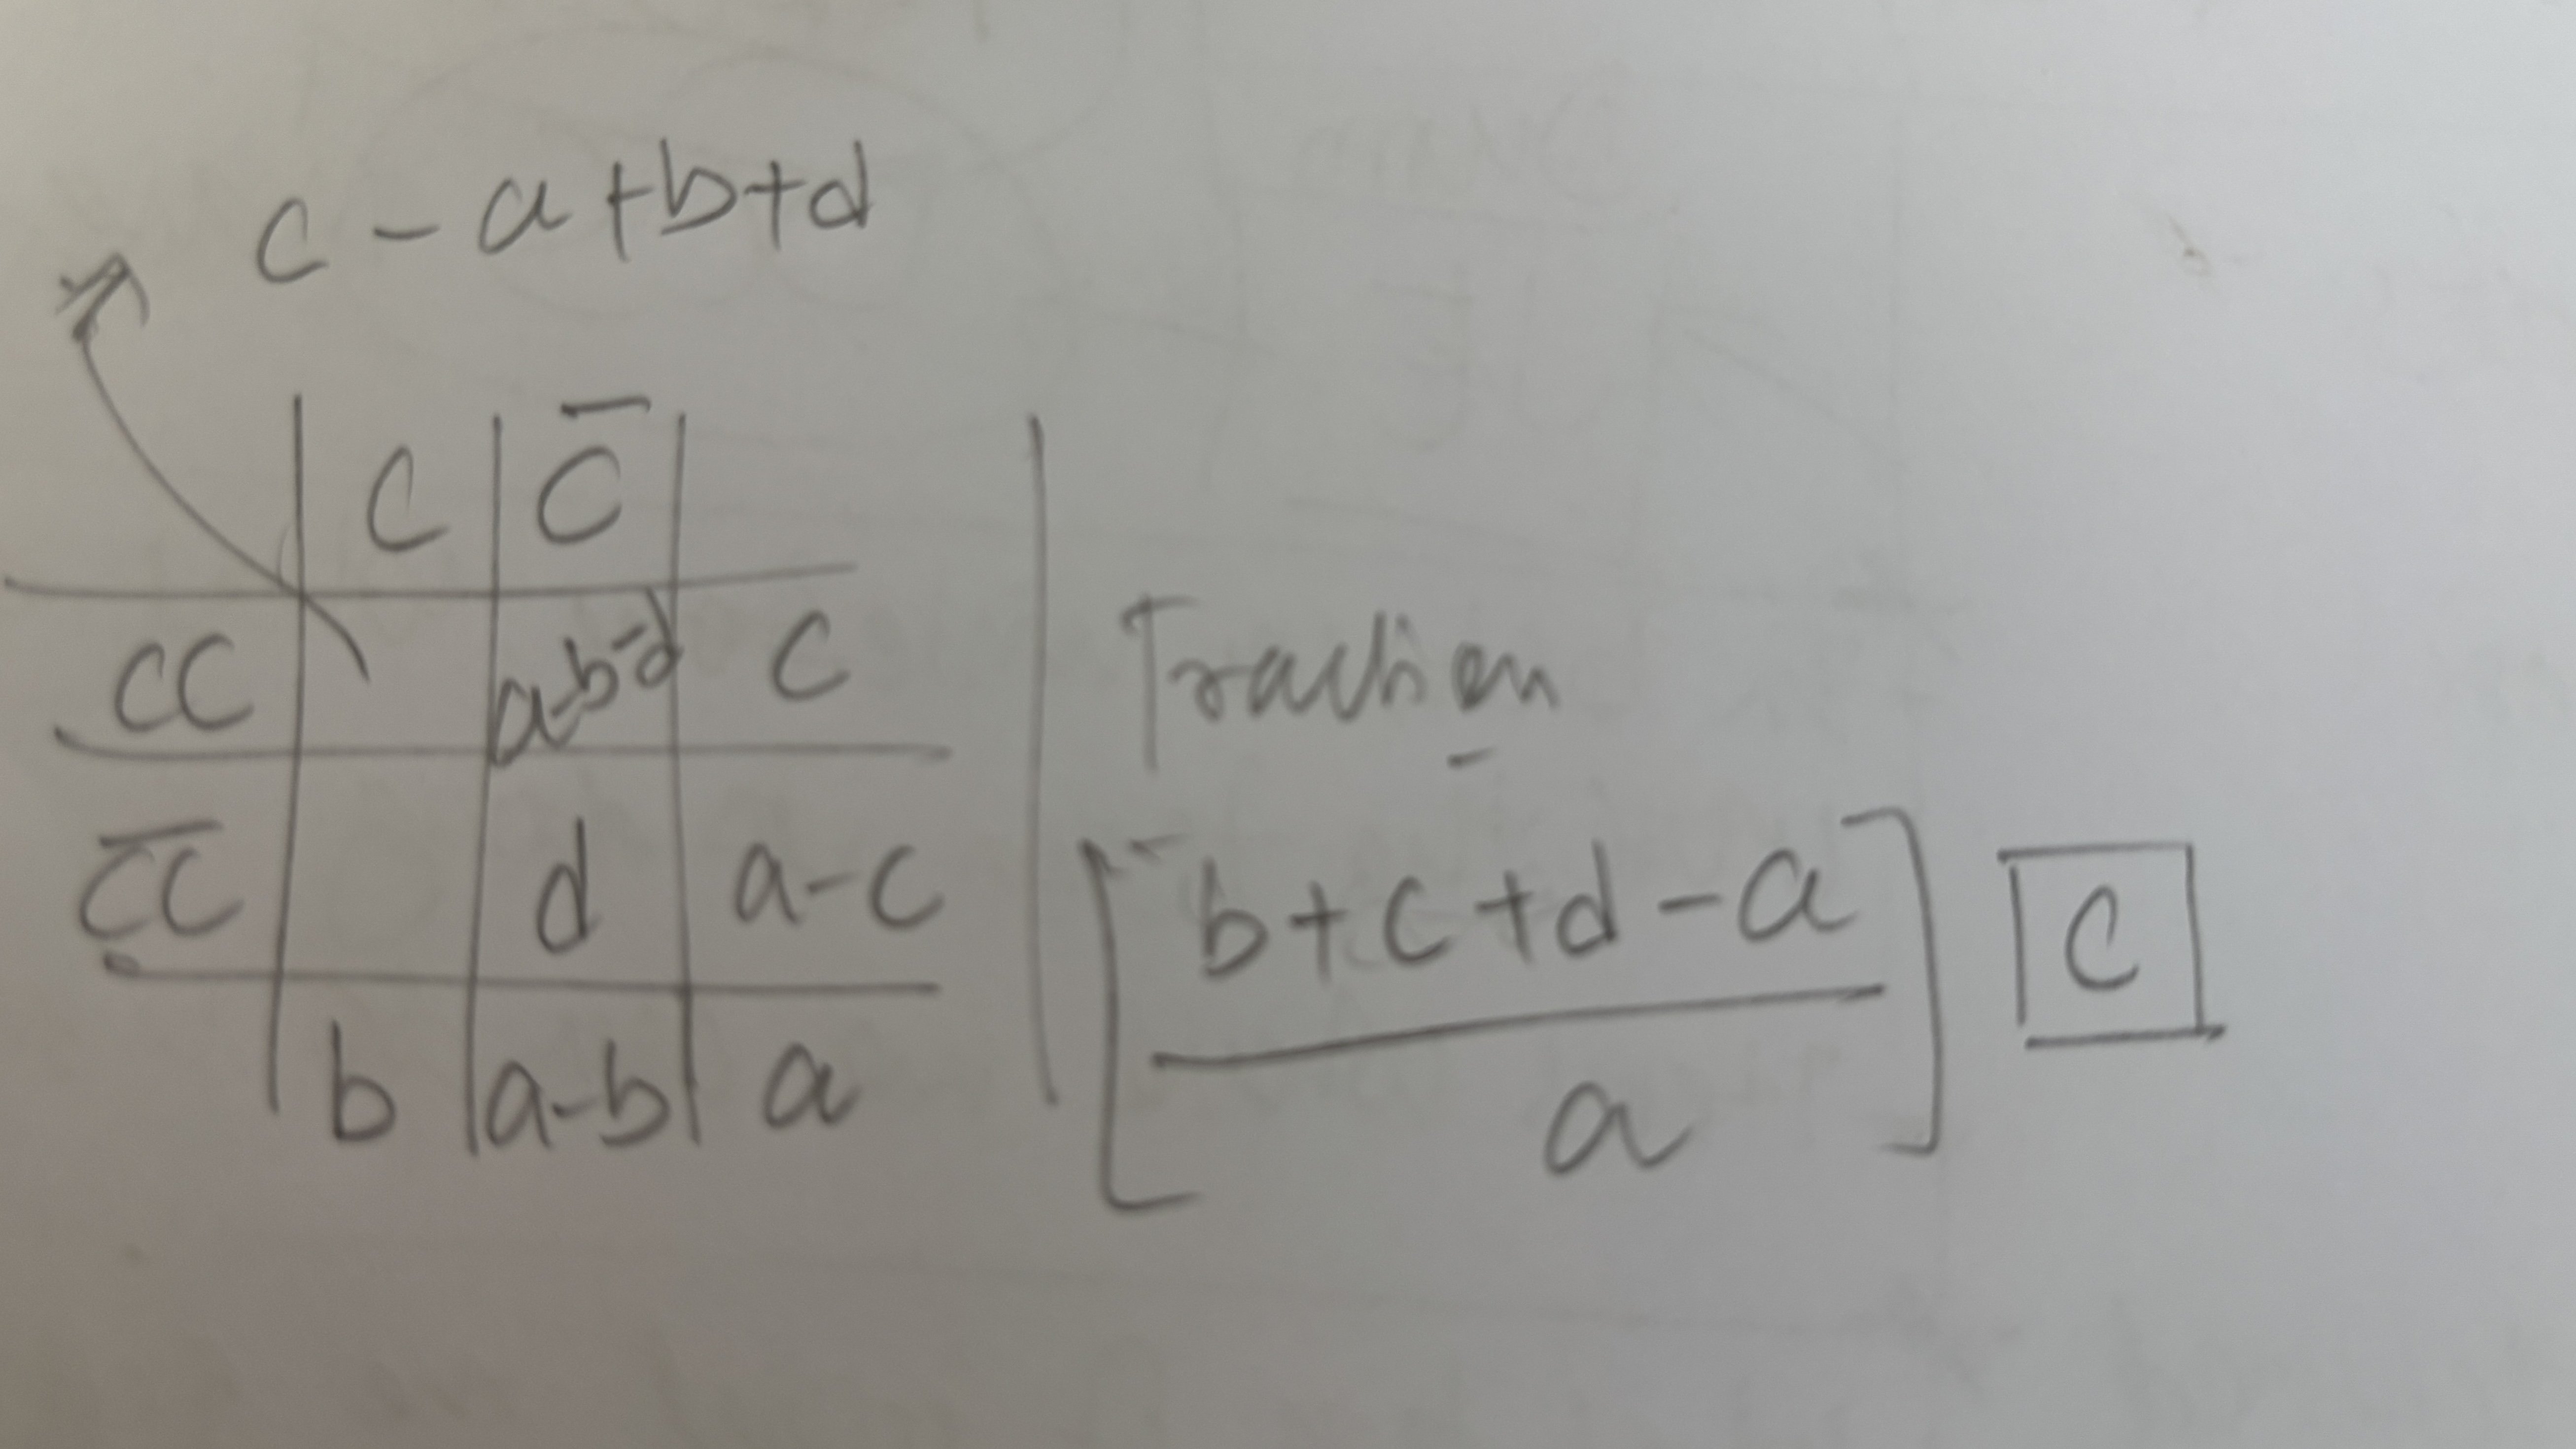 c - a + b + d
C C̅
CC a-b-d C
C̅C̅ d a-c
b a-b a
Fraction
b + c + d - a
a
C